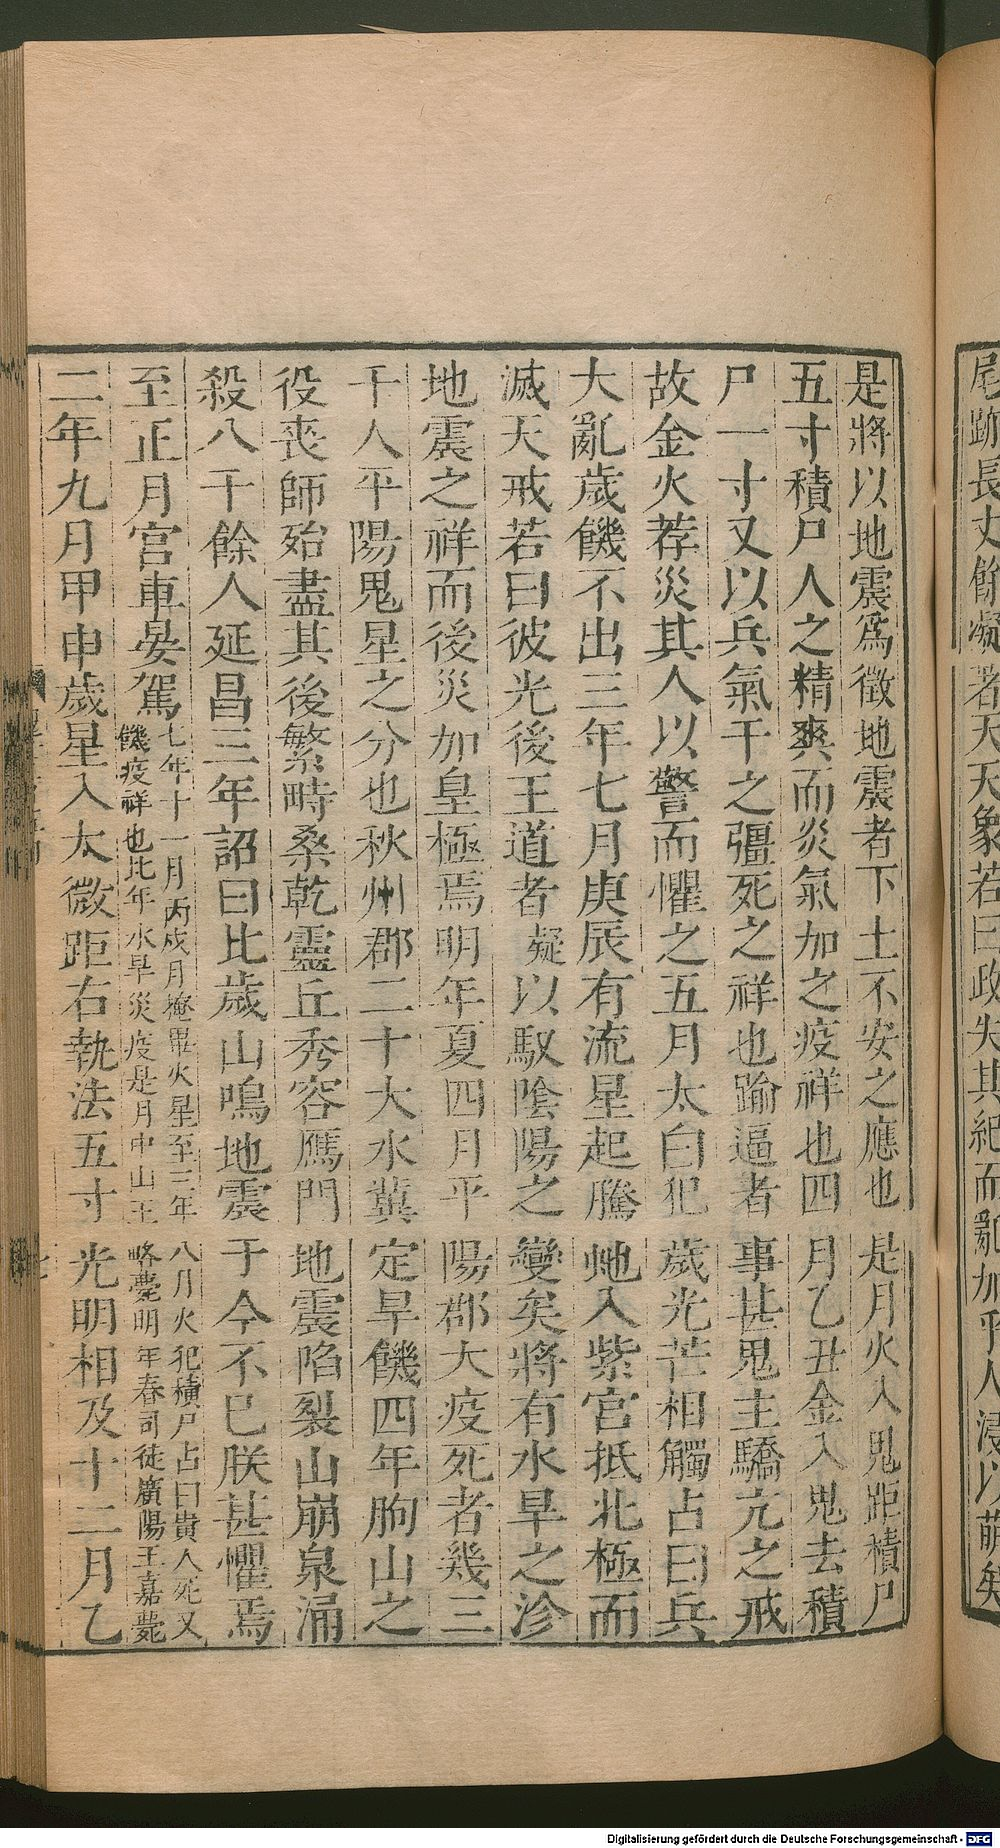 尾跡長丈餘凝著天天象若曰政失其紀而亂加乎人浸以萌矣
是將以地震爲徵地震者下土不安之應也是月火入鬼距積尸
五寸積尸人之精爽而炎氣加之疫祥也四月乙丑金入鬼去積
尸一寸又以兵氣干之彊死之祥也踰逼者事甚鬼主驕亢之戒
故金火荐災其人以警而懼之五月太白犯歲光芒相觸占曰兵
大亂歲饑不出三年七月庚辰有流星起騰虵入紫宮抵北極而
滅天戒若曰彼光後王道者凝以馭陰陽之變矣將有水旱之沴
地震之祥而後災加皇極焉明年夏四月平陽郡大疫死者幾三
千人平陽鬼星之分也秋州郡二十大水冀定旱饑四年朐山之
役喪師殆盡其後繁畤桑乾靈丘秀容鴈門地震陷裂山崩泉涌
殺八千餘人延昌三年詔曰比歲山鳴地震于今不已朕甚懼焉
至正月宮車晏駕七年十一月丙戌月掩畢火星至三年八月火犯積尸占曰貴人死又
饑疫祥也比年水旱災疫是月中山王略薨明年春司徒廣陽王嘉薨
二年九月甲申歲星入太微距右執法五寸光明相及十二月乙
Digitalisierung gefördert durch die Deutsche Forschungsgemeinschaft - DFG